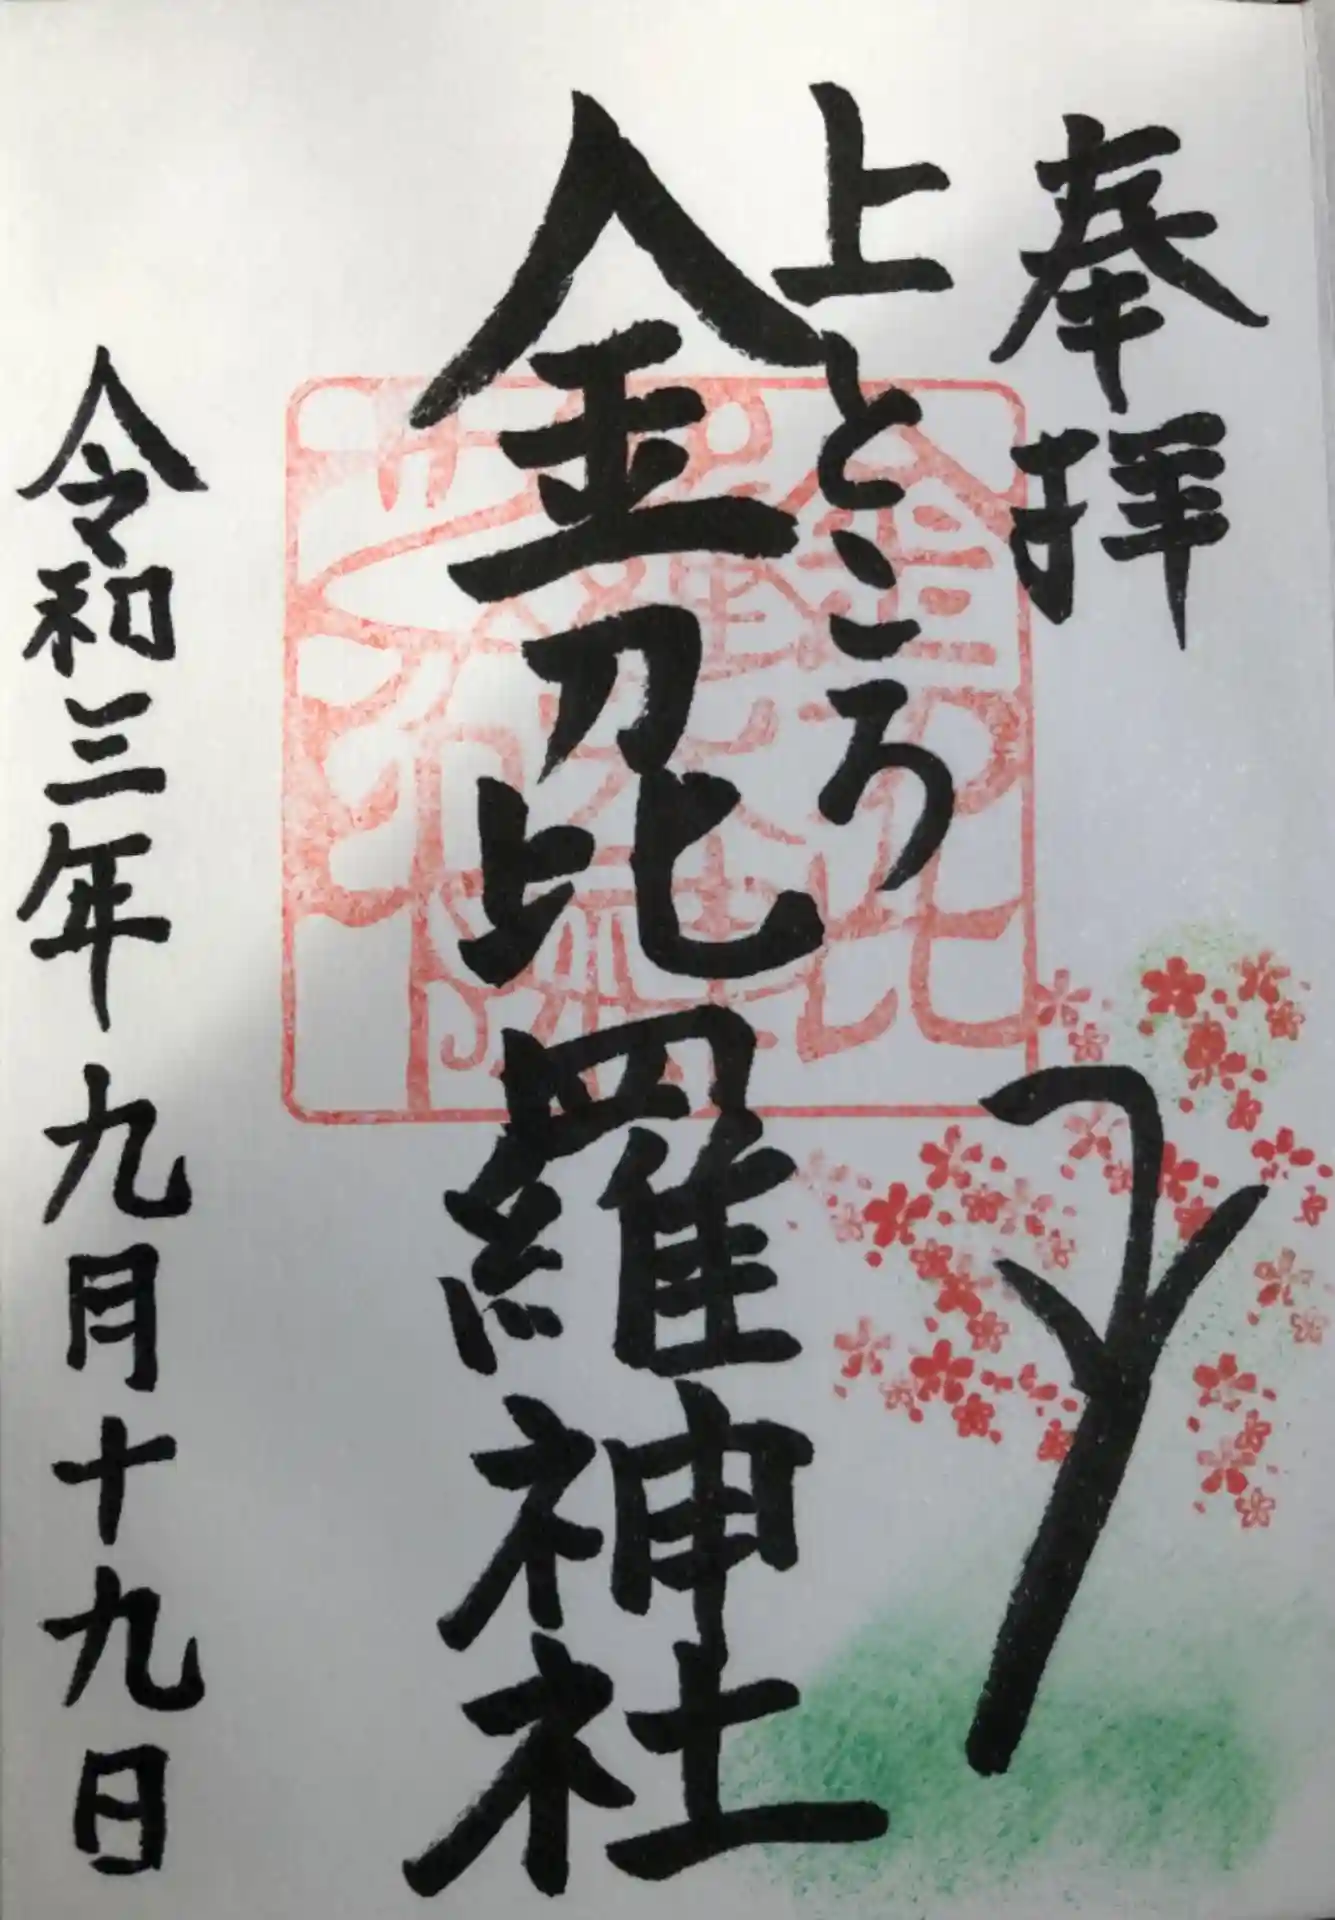 奉拝
上ところ
金刀比羅神社
令和三年九月十九日